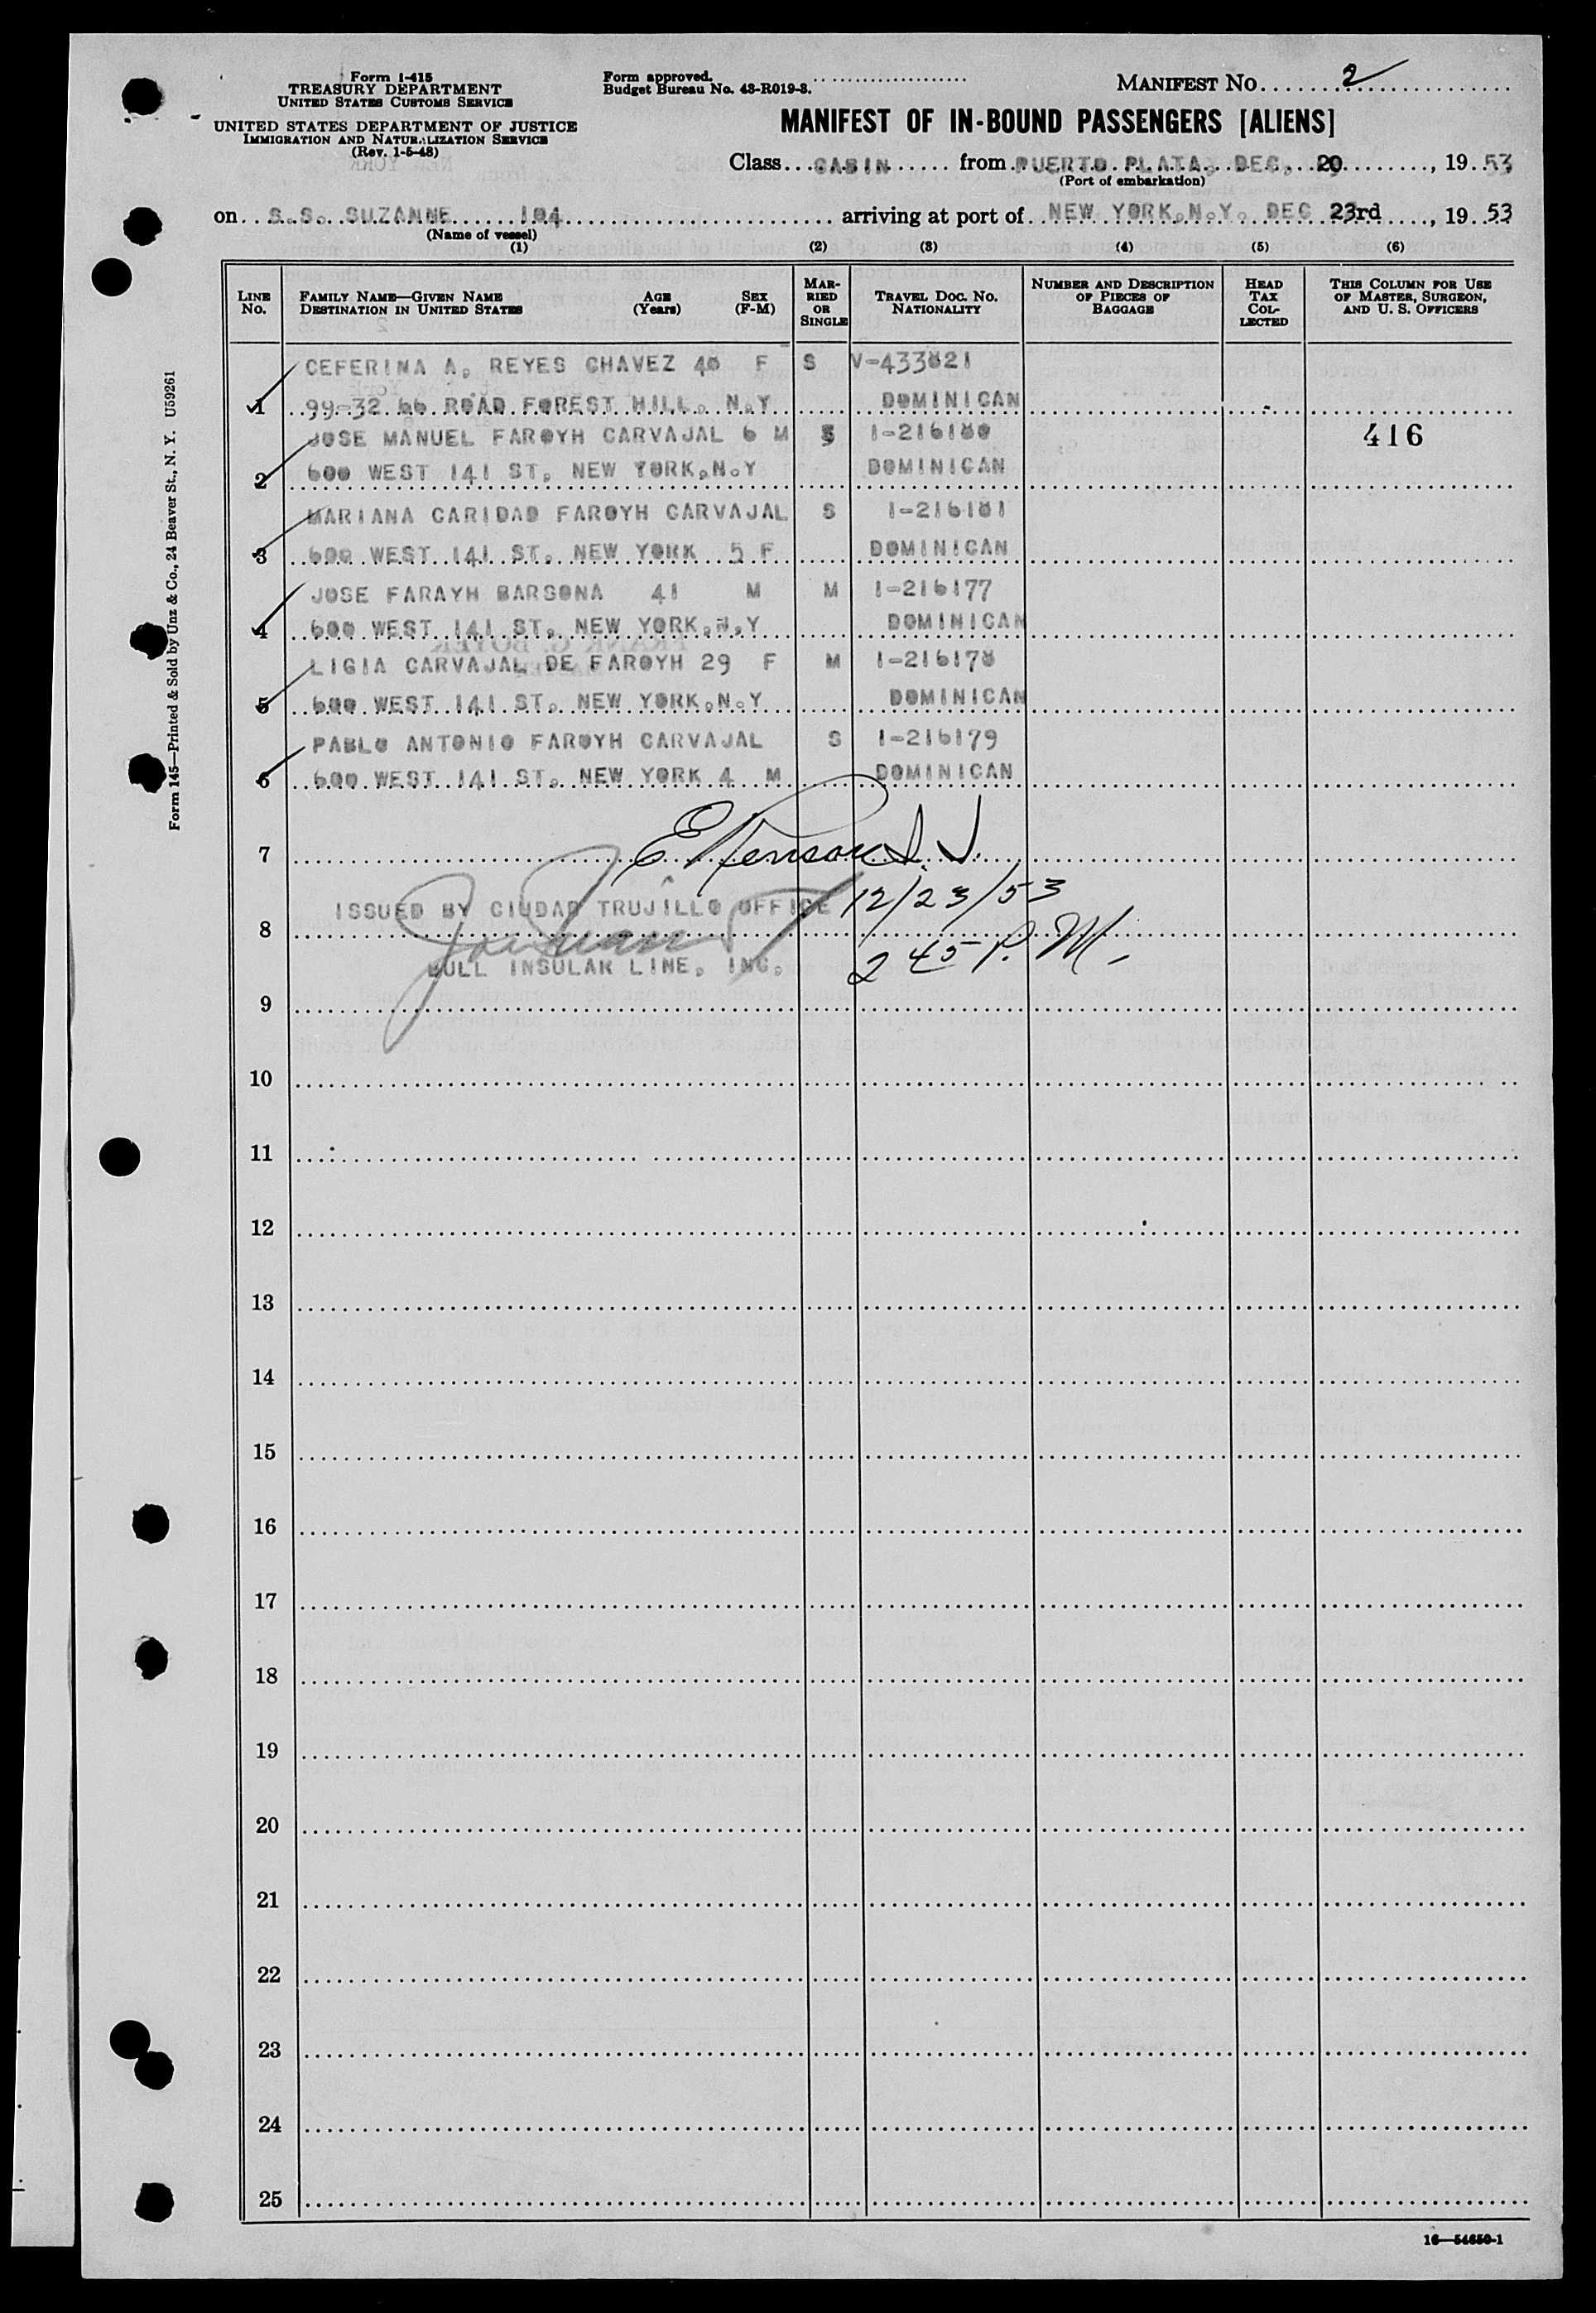 Form I-415
TREASURY DEPARTMENT
UNITED STATES CUSTOMS SERVICE
UNITED STATES DEPARTMENT OF JUSTICE
IMMIGRATION AND NATURALIZATION SERVICE
(Rev. 1-5-48)
Form approved.
Budget Bureau No. 43-R019-3.
MANIFEST No. 2
MANIFEST OF IN-BOUND PASSENGERS [ALIENS]
Class CABIN from PUERTO PLATA, DEC, 20, 19 53
(Port of embarkation)
on S.S. SUZANNE 104 arriving at port of NEW YORK,N.Y. DEC 23rd, 19 53
(Name of vessel)
(1) (2) (3) (4) (5) (6)
LINE No. FAMILY NAME—GIVEN NAME DESTINATION IN UNITED STATES AGE (Years) SEX (F-M) MARRIED OR SINGLE TRAVEL DOC. NO. NATIONALITY NUMBER AND DESCRIPTION OF PIECES OF BAGGAGE HEAD TAX COLLECTED THIS COLUMN FOR USE OF MASTER, SURGEON, AND U. S. OFFICERS
CEFERINA A. REYES CHAVEZ 40 F S V-433821
1 99-32 66 ROAD FOREST HILL. N.Y DOMINICAN
JOSE MANUEL FAROYH CARVAJAL 6 M S I-216180 416
2 600 WEST 141 ST. NEW YORK,N.Y DOMINICAN
MARIANA CARIDAD FAROYH CARVAJAL S I-216181
3 600 WEST 141 ST. NEW YORK 5 F DOMINICAN
JOSE FARAYH BARSONA 41 M M I-216177
4 600 WEST 141 ST. NEW YORK,N.Y DOMINICAN
LIGIA CARVAJAL DE FAROYH 29 F M I-216178
5 600 WEST 141 ST. NEW YORK,N.Y DOMINICAN
PABLO ANTONIO FAROYH CARVAJAL S I-216179
6 600 WEST 141 ST. NEW YORK 4 M DOMINICAN
7
12/23/53
ISSUED BY CIUDAD TRUJILLO OFFICE
8
2 45 P. M.
BULL INSULAR LINE, INC.
9
10
11
12
13
14
15
16
17
18
19
20
21
22
23
24
25
16—54650-1
Form 145—Printed & Sold by Unz & Co., 24 Beaver St., N. Y. U59261